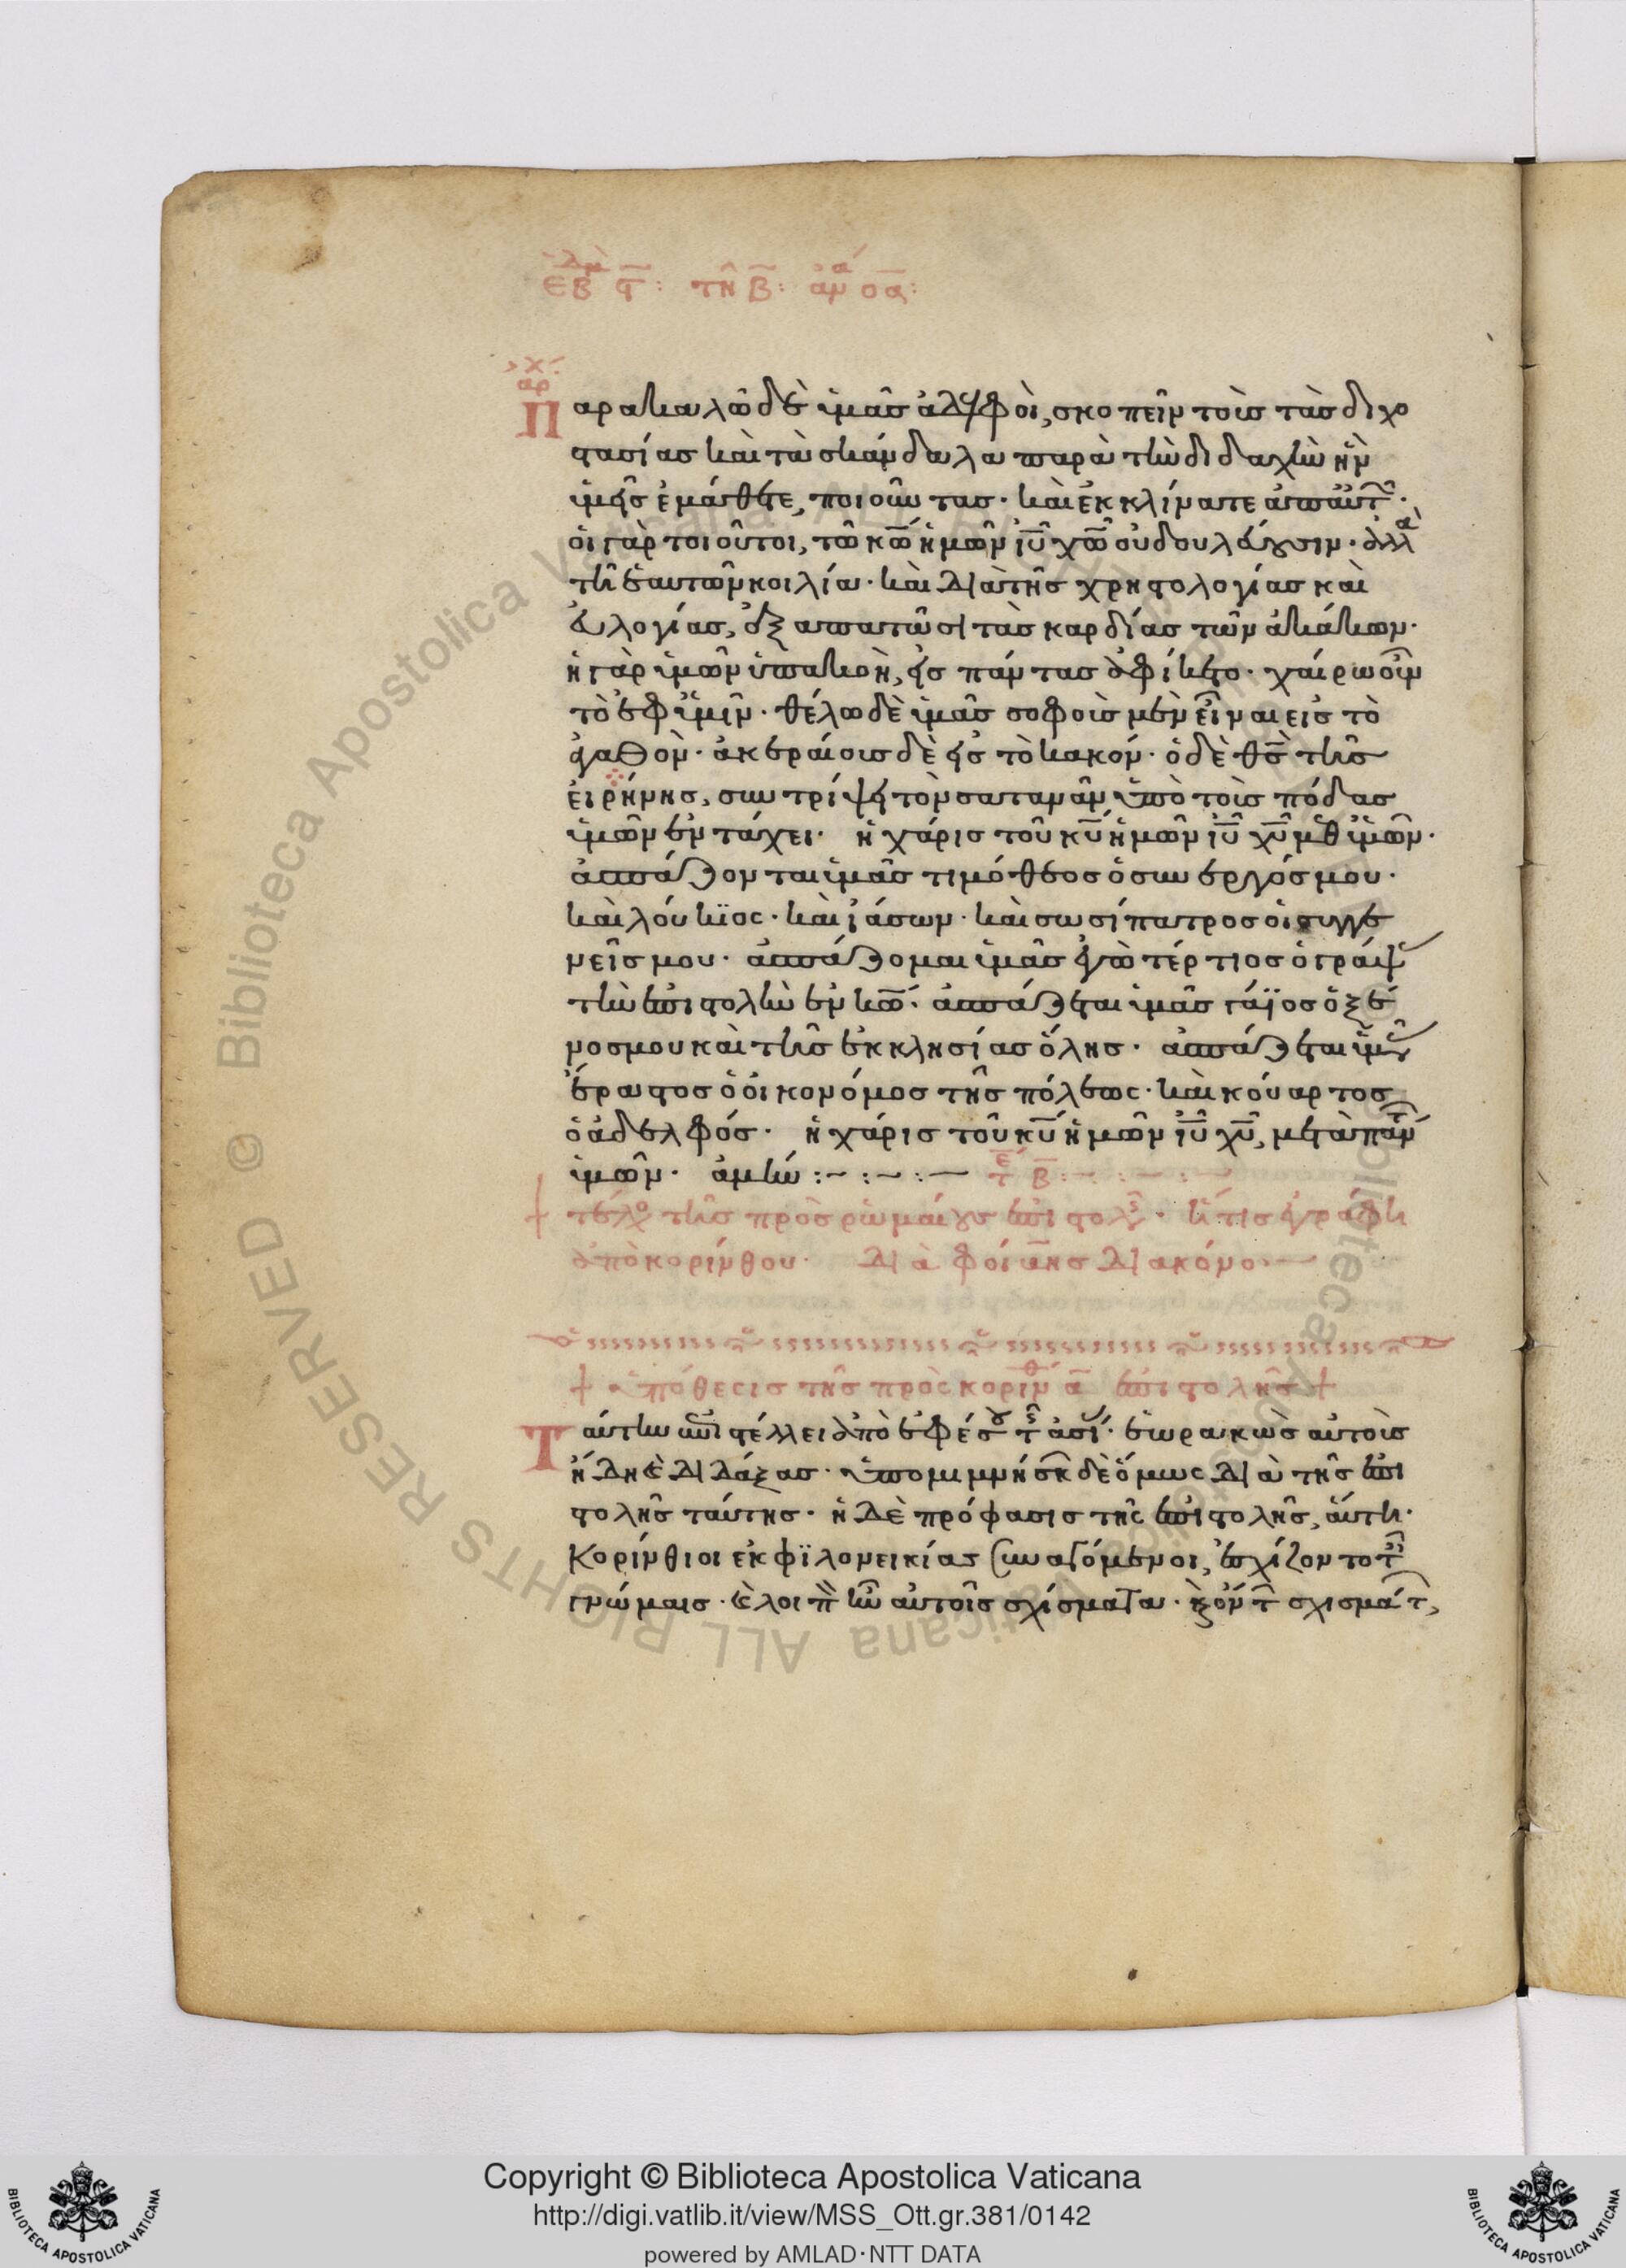 Παρακαλῶ δὲ ὑμᾶς ἀδελφοὶ, σκοπεῖν τοὺς τὰς διχο
στασίας καὶ τὰ σκάνδαλα παρὰ τὴν διδαχὴν ἣν
ὑμεῖς ἐμάθετε, ποιοῦντας· καὶ ἐκκλίνατε ἀπ' αὐτ·
οἱ γὰρ τοιοῦτοι, τῶ κω ἡμῶν ιυ χω οὐ δουλεύουσιν· ἀλλὰ
τῆ ἑαυτῶν κοιλία· καὶ διὰ τῆς χρηστολογίας καὶ
εὐλογίας, ἐξαπατῶσι τὰς καρδίας τῶν ἀκάκων·
ἡ γὰρ ὑμῶν ὑπακοὴ, εἰς πάντας ἀφίκετο· χαίρω οὖν
τὸ ἐφ' ὑμῖν· θέλω δὲ ὑμᾶς σοφοὺς μὲν εἶναι εἰς τὸ
ἀγαθὸν· ἀκεραίους δὲ εἰς τὸ κακόν· ὁ δὲ θς τῆς
εἰρήνης, συντρίψει τὸν σατανᾶν ὑπὸ τοὺς πόδας
ὑμῶν ἐν τάχει· ἡ χάρις τοῦ κυ ἡμῶν ιυ χυ μεθ' ὑμῶν·
ἀσπάζονται ὑμᾶς τιμόθεος ὁ συνεργός μου·
καὶ λούκϊος· καὶ ἰάσων· καὶ σωσίπατρος οἱ συγγε
νεῖς μου· ἀσπάζομαι ὑμᾶς ἐγὼ τέρτιος ὁ γράψ
τὴν ἐπιστολὴν ἐν κω· ἀσπάζεται ὑμᾶς γάϊος ὁ ξέ
νος μου καὶ τῆς ἐκκλησίας ὅλης· ἀσπάζεται ὑμᾶς
ἔραστος ὁ οἰκονόμος τῆς πόλεως· καὶ κούαρτος
ὁ ἀδελφός· ἡ χάρις τοῦ κυ ἡμῶν ιυ χυ, μετὰ πάντ
ὑμῶν· ἀμήν :~ :~ :—
τέλος τῆς πρὸς ῥωμαίους ἐπιστολῆς· ἥτις ἐγράφη
ἀπὸ κορίνθου· διὰ φοίβης διακόνου
+ ὑπόθεσις τῆς πρὸς κορινθ α ἐπιστολῆς +
Ταύτην ἐπιστέλλει ἀπὸ ἐφέσου τῆς ἀσί· ἑωρακὼς αὐτοὺς
ἤδη καὶ διδάξας· ὑπομιμνήσκ δὲ ὅμως διὰ τῆς ἐπι
στολῆς ταύτης· ἡ δὲ πρόφασις τῆς ἐπιστολῆς, αὕτη·
Κορίνθιοι ἐκ φϊλονεικίας συναγόμενοι, ἐσχίζοντο τ
γνώμαις· καὶ λοιπ ἦν αὐτοῖς σχίσματα· καὶ ὄντ σχισμάτ,
Copyright © Biblioteca Apostolica Vaticana
http://digi.vatlib.it/view/MSS_Ott.gr.381/0142
powered by AMLAD·NTT DATA